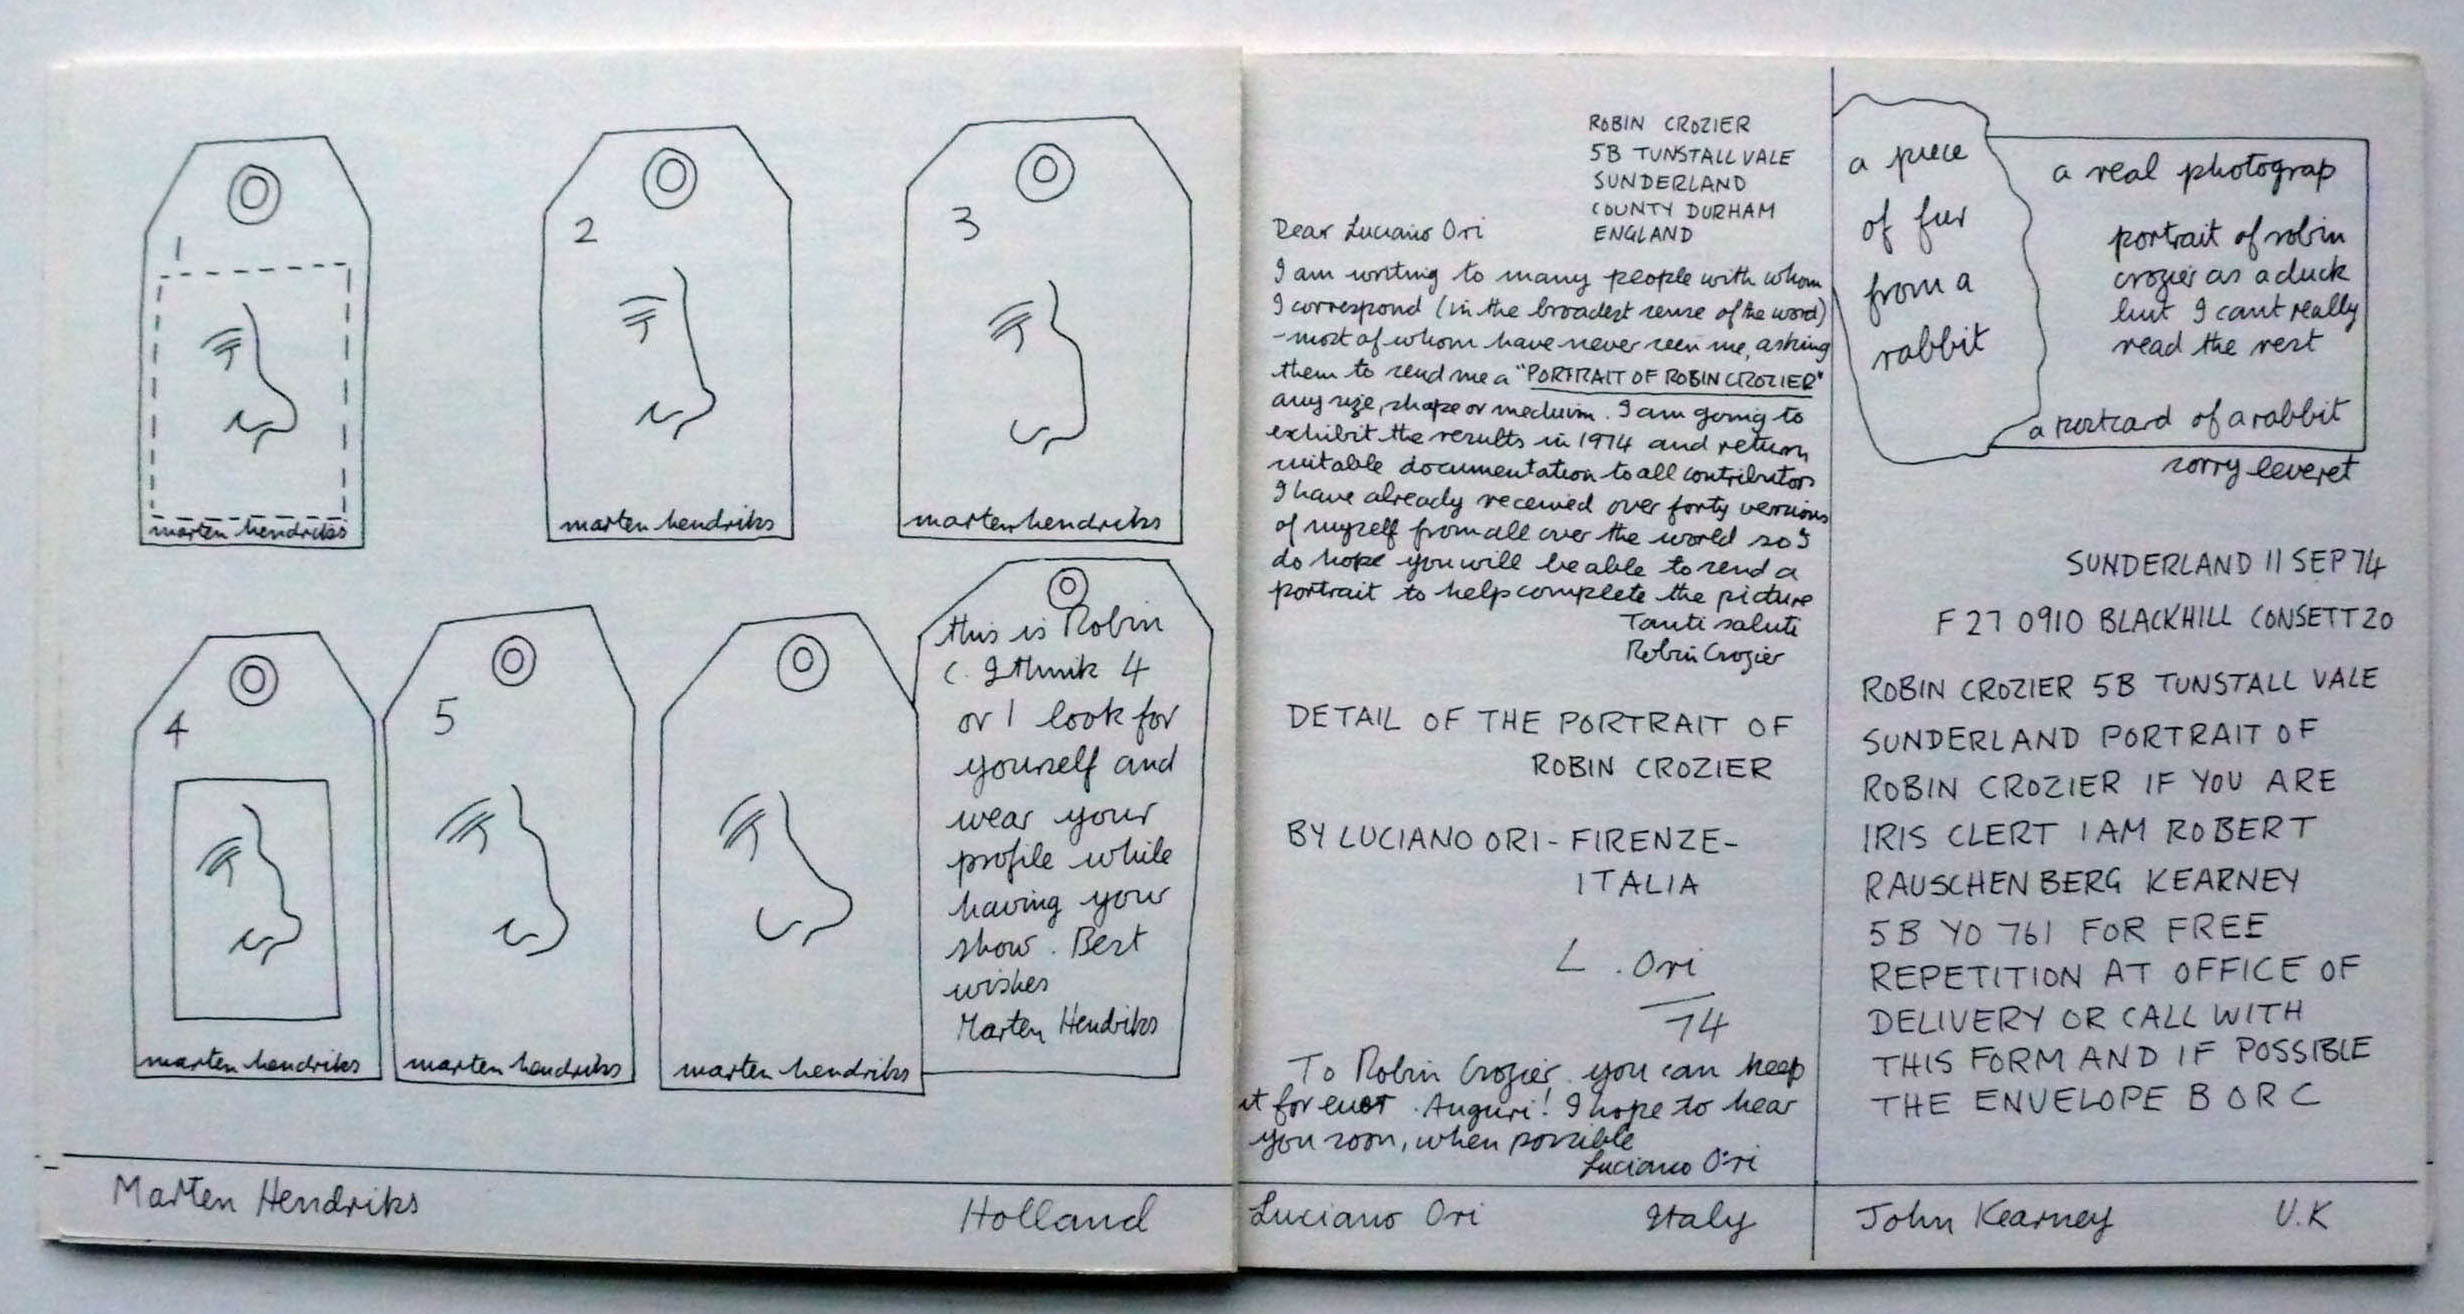 1
marten hendriks
2
marten hendriks
3
marten hendriks
4
marten hendriks
5
marten hendriks
marten hendriks
this is Robin
C. I think 4
or 1 look for
yourself and
wear your
profile while
having your
show. Best
wishes
Marten Hendriks
Marten Hendriks Holland
ROBIN CROZIER
5B TUNSTALL VALE
SUNDERLAND
COUNTY DURHAM
ENGLAND
Dear Luciano Ori
I am writing to many people with whom
I correspond (in the broadest sense of the word)
- most of whom have never seen me, asking
them to send me a "PORTRAIT OF ROBIN CROZIER"
any size, shape or medium. I am going to
exhibit the results in 1974 and return
suitable documentation to all contributors
I have already received over forty versions
of myself from all over the world so I
do hope you will be able to send a
portrait to help complete the picture
Tanti saluti
Robin Crozier
DETAIL OF THE PORTRAIT OF
ROBIN CROZIER
BY LUCIANO ORI - FIRENZE -
ITALIA
L. Ori
74
To Robin Crozier. you can keep
it for ever. Auguri! I hope to hear
you soon, when possible
Luciano Ori
Luciano Ori Italy
a piece
of fur
from a
rabbit
a real photograp
portrait of robin
crozier as a duck
but I cant really
read the rest
a postcard of a rabbit
sorry leveret
SUNDERLAND 11 SEP 74
F 27 0910 BLACKHILL CONSETT 20
ROBIN CROZIER 5B TUNSTALL VALE
SUNDERLAND PORTRAIT OF
ROBIN CROZIER IF YOU ARE
IRIS CLERT I AM ROBERT
RAUSCHENBERG KEARNEY
5B YO 761 FOR FREE
REPETITION AT OFFICE OF
DELIVERY OR CALL WITH
THIS FORM AND IF POSSIBLE
THE ENVELOPE B OR C
John Kearney U.K